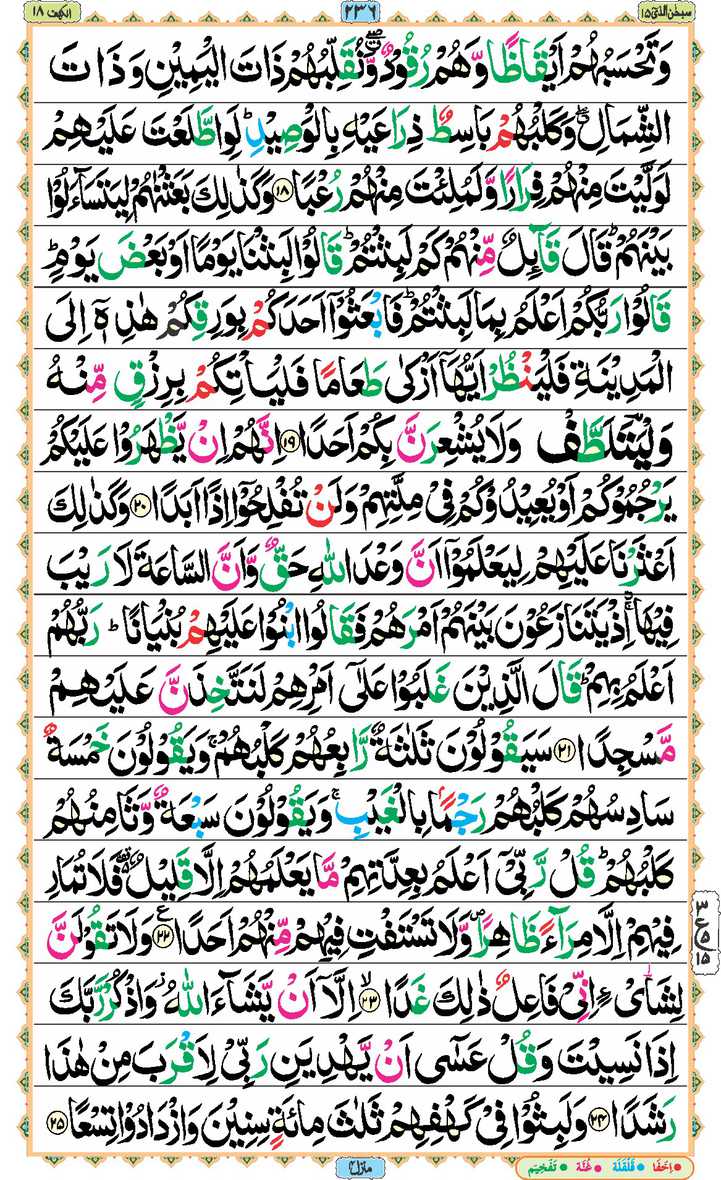 سبحٰن الذی ۱۵
۲۳۶
الکہف ۱۸
وَتَحْسَبُهُمْ اَيْقَاظًا وَّهُمْ رُقُوْدٌ ۖۗ وَّنُقَلِّبُهُمْ ذَاتَ الْيَمِيْنِ وَ ذَاتَ
الشِّمَالِ ۖۗ وَكَلْبُهُمْ بَاسِطٌ ذِرَاعَيْهِ بِالْوَصِيْدِ ؕ لَوِ اطَّلَعْتَ عَلَيْهِمْ
لَوَلَّيْتَ مِنْهُمْ فِرَارًا وَّلَمُلِئْتَ مِنْهُمْ رُعْبًا ۱۸ وَكَذٰلِكَ بَعَثْنٰهُمْ لِيَتَسَآءَلُوْا
بَيْنَهُمْ ؕ قَالَ قَآئِلٌ مِّنْهُمْ كَمْ لَبِثْتُمْ ؕ قَالُوْا لَبِثْنَا يَوْمًا اَوْ بَعْضَ يَوْمٍ ؕ
قَالُوْا رَبُّكُمْ اَعْلَمُ بِمَا لَبِثْتُمْ ؕ فَابْعَثُوْۤا اَحَدَكُمْ بِوَرِقِكُمْ هٰذِهٖۤ اِلَى
الْمَدِيْنَةِ فَلْيَنْظُرْ اَيُّهَاۤ اَزْكٰى طَعَامًا فَلْيَاْتِكُمْ بِرِزْقٍ مِّنْهُ
وَلْيَتَلَطَّفْ وَلَا يُشْعِرَنَّ بِكُمْ اَحَدًا ۱۹ اِنَّهُمْ اِنْ يَّظْهَرُوْا عَلَيْكُمْ
يَرْجُمُوْكُمْ اَوْ يُعِيْدُوْكُمْ فِىْ مِلَّتِهِمْ وَلَنْ تُفْلِحُوْۤا اِذًا اَبَدًا ۲۰ وَكَذٰلِكَ
اَعْثَرْنَا عَلَيْهِمْ لِيَعْلَمُوْۤا اَنَّ وَعْدَ اللّٰهِ حَقٌّ وَّاَنَّ السَّاعَةَ لَا رَيْبَ
فِيْهَا ۚ اِذْ يَتَنَازَعُوْنَ بَيْنَهُمْ اَمْرَهُمْ فَقَالُوا ابْنُوْا عَلَيْهِمْ بُنْيَانًا ؕ رَبُّهُمْ
اَعْلَمُ بِهِمْ ؕ قَالَ الَّذِيْنَ غَلَبُوْا عَلٰٓى اَمْرِهِمْ لَنَتَّخِذَنَّ عَلَيْهِمْ
مَّسْجِدًا ۲۱ سَيَقُوْلُوْنَ ثَلٰثَةٌ رَّابِعُهُمْ كَلْبُهُمْ ۚ وَيَقُوْلُوْنَ خَمْسَةٌ
سَادِسُهُمْ كَلْبُهُمْ رَجْمًا ۢ بِالْغَيْبِ ۚ وَيَقُوْلُوْنَ سَبْعَةٌ وَّثَامِنُهُمْ
كَلْبُهُمْ ؕ قُلْ رَّبِّىْۤ اَعْلَمُ بِعِدَّتِهِمْ مَّا يَعْلَمُهُمْ اِلَّا قَلِيْلٌ ۫ فَلَا تُمَارِ
فِيْهِمْ اِلَّا مِرَآءً ظَاهِرًا ۪ وَّلَا تَسْتَفْتِ فِيْهِمْ مِّنْهُمْ اَحَدًا ۲۲ وَلَا تَقُوْلَنَّ
لِشَاىْءٍ اِنِّىْ فَاعِلٌ ذٰلِكَ غَدًا ۙ ۲۳ اِلَّاۤ اَنْ يَّشَآءَ اللّٰهُ ۫ وَاذْكُرْ رَّبَّكَ
اِذَا نَسِيْتَ وَقُلْ عَسٰٓى اَنْ يَّهْدِيَنِ رَبِّىْ لِاَقْرَبَ مِنْ هٰذَا
رَشَدًا ۲۴ وَلَبِثُوْا فِىْ كَهْفِهِمْ ثَلٰثَ مِائَةٍ سِنِيْنَ وَازْدَادُوْا تِسْعًا ۲۵
۳
ع
۵
۱۵
منزل ۴
اِخْفَا قَلْقَلَة غُنَّة تَفْخِيْم